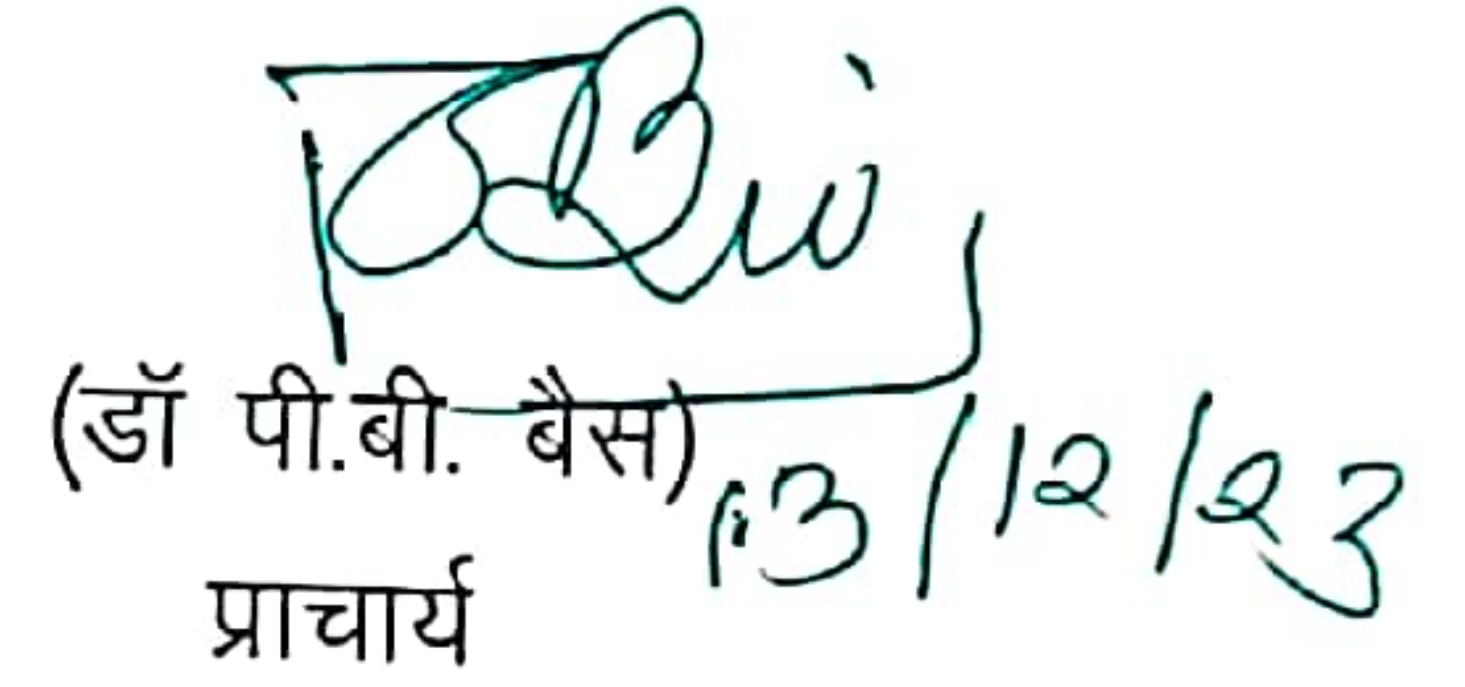 (डॉ पी.बी. बैस)
13/12/23
प्राचार्य